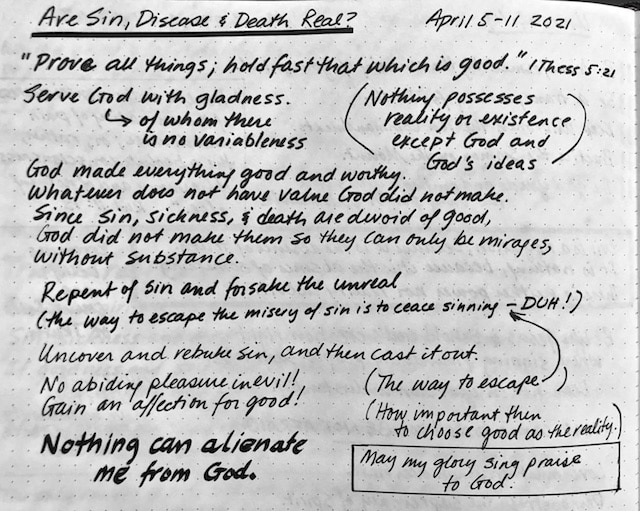 Are Sin, Disease & Death Real?
April 5-11 2021
"Prove all things; hold fast that which is good." 1 Thess 5:21
Serve God with gladness.
↳ of whom there
is no variableness
(Nothing possesses
reality or existence
except God and
God's ideas)
God made everything good and worthy.
Whatever does not have value God did not make.
Since sin, sickness, & death are devoid of good,
God did not make them so they can only be mirages,
without substance.
Repent of sin and forsake the unreal
(the way to escape the misery of sin is to ceace sinning – DUH!)
Uncover and rebuke sin, and then cast it out.
No abiding pleasure in evil!,
Gain an affection for good!
(The way to escape)
(How important then
to choose good as the reality.)
Nothing can alienate
me from God.
May my glory sing praise
to God.